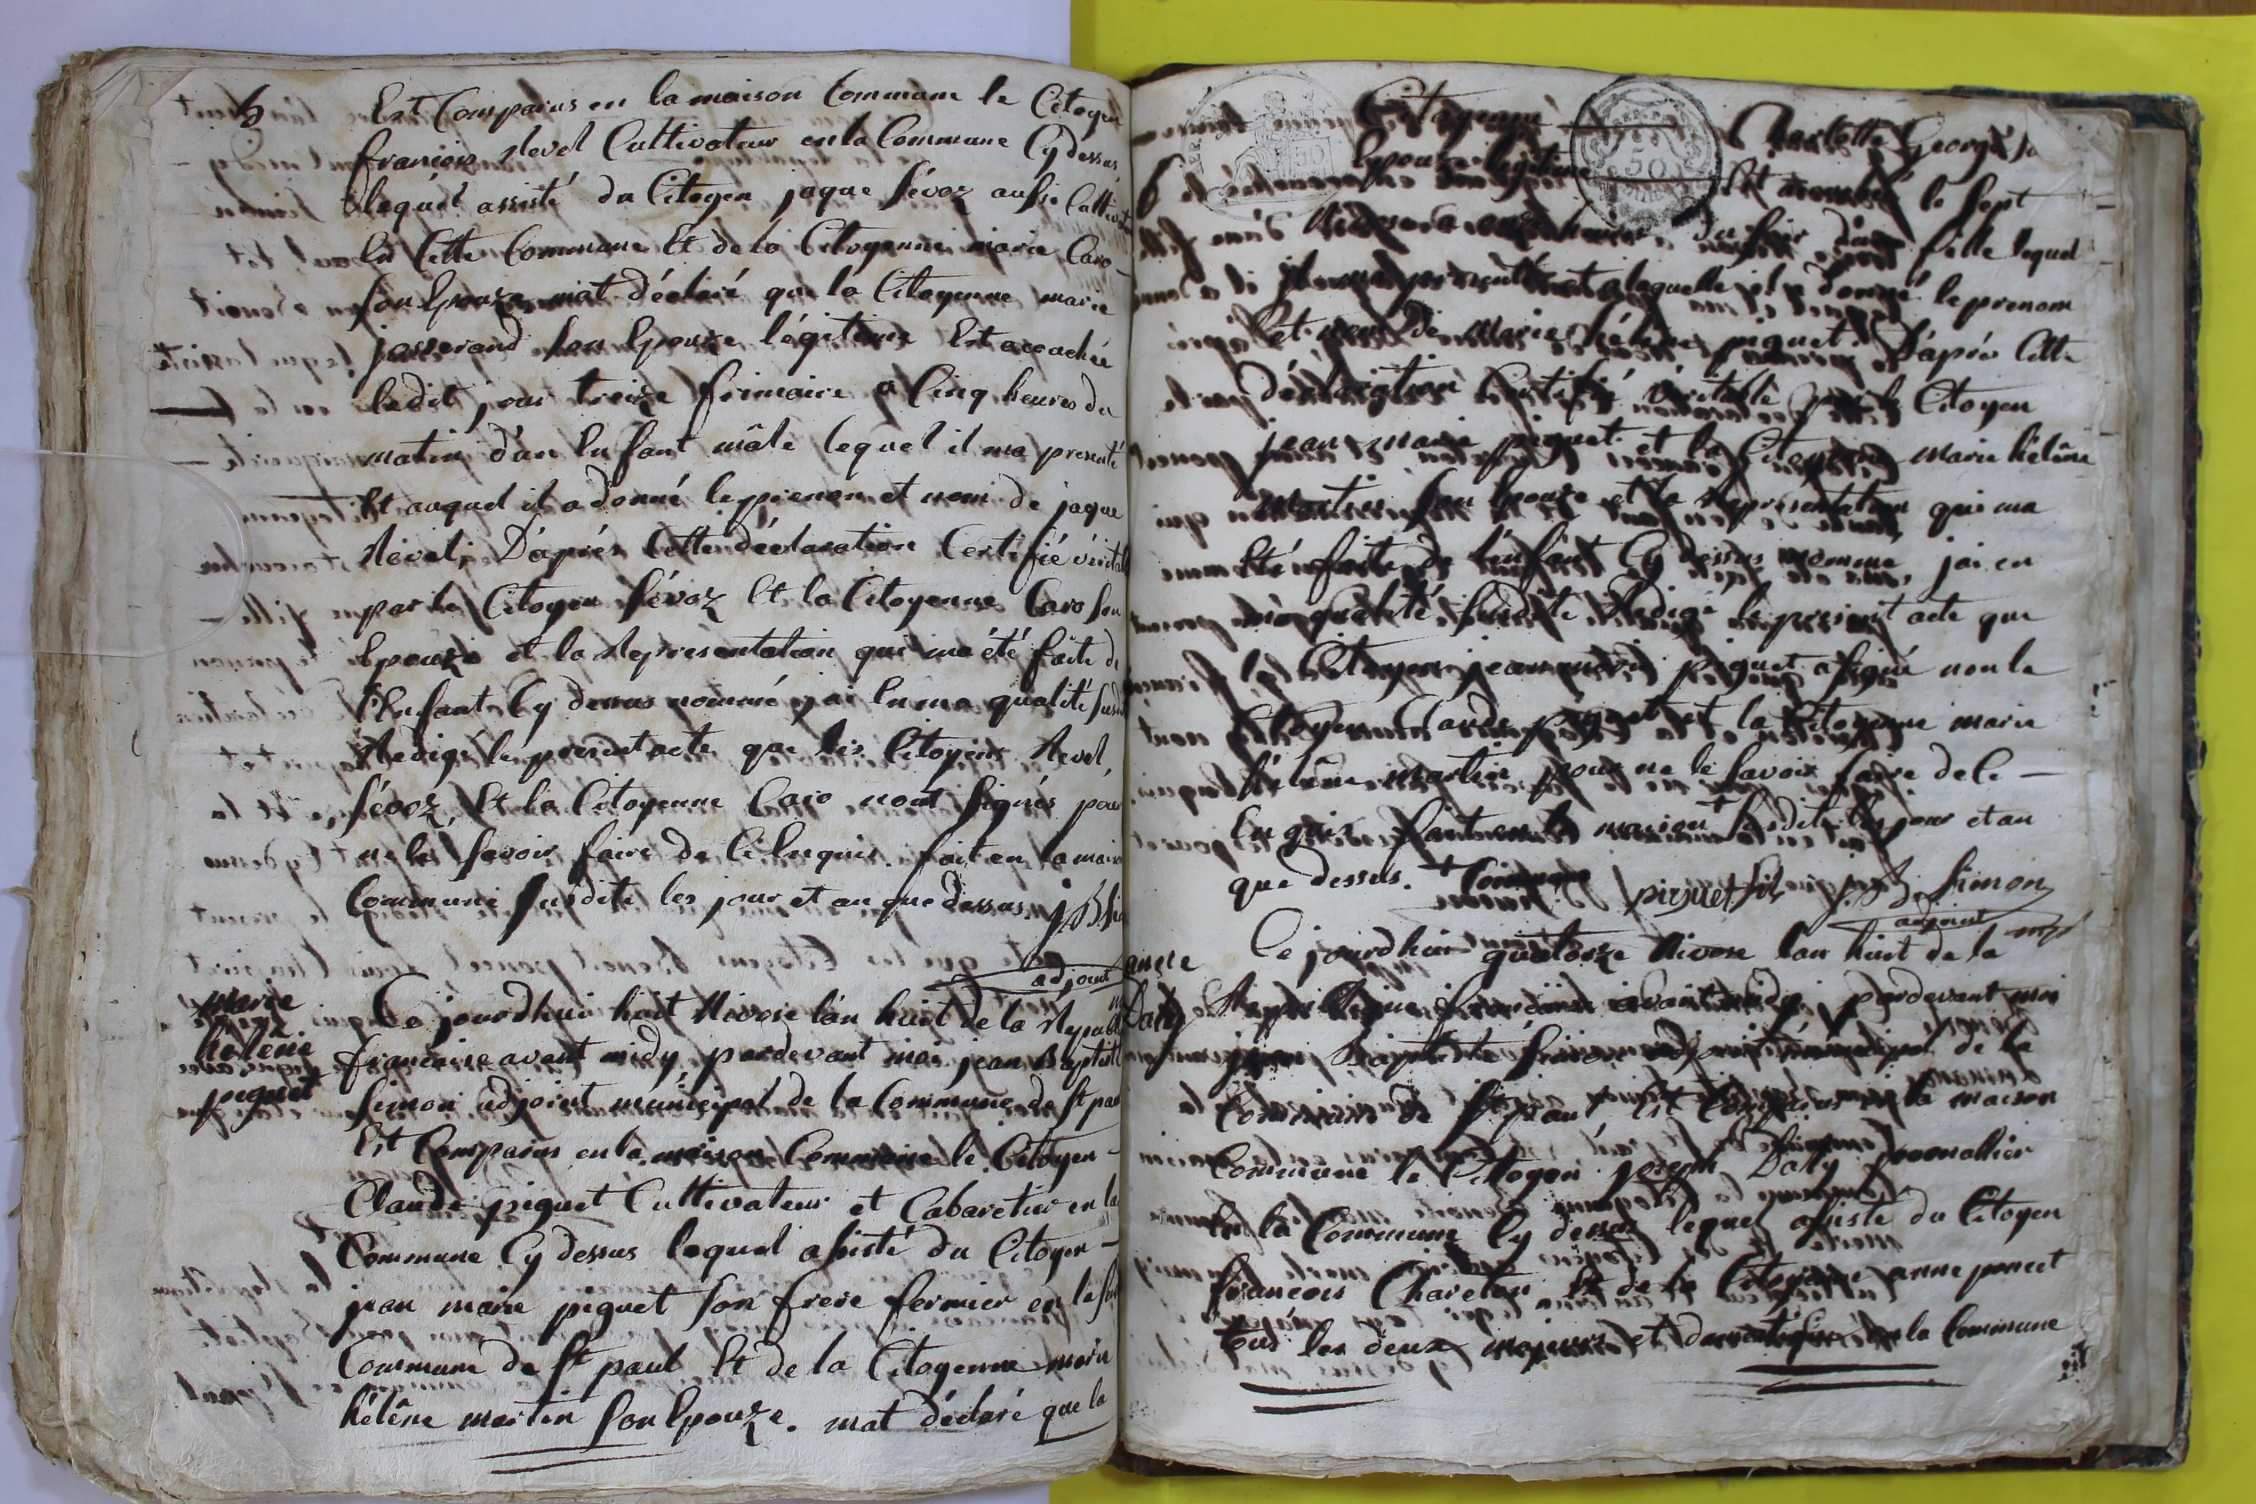 Est Comparus en la maison Commune le Citoyen
francois Revel Cultivateur en la Commune Cy dessus
lequél assisté du Citoyen jaque févoz aussi Cultivat
En Cette Commune Et de la Citoyenne marie Caro
son Epouze mat déclaré que la Citoyenne marie
josserand son Epouze légitime Est accochée
ledit jour treize frimaire a Cinq heures du
matin d'un Enfant mâle lequel il ma presenté
Et auquel il a donné le prenom et nom de jaque
Revel, D'aprés Cette déclaration Certifié véritable
par le Citoyen févoz Et la Citoyenne Caro son
Epouze et la Representation qui ma été faite de
l'Enfant Cy dessus nommé jai En ma qualité susd
Redigé le present acte que les Citoyens Revel,
févoz, Et la Citoyenne Caro nont signés pour
ne le savoir faire de Ce Enquis. fait en la maison
Commune susdite les jour et an que dessus j. B. Si
adjoint
marie
heléne
piquet
Ce jourdhui huit Nivose l'an huit de la Republ
francaise avant midy, pardevant moi jean Baptiste
Simon adjoint municipal de la Commune de St paul
Est Comparus en la maison Commune le Citoyen
Claude piquet Cultivateur et Cabaretier en la
Commune Cy dessus lequel assisté du Citoyen
jean marie piquet son frere fermier en la
Commune de St paul Et de la Citoyenne marie
hélêne martin son Epouze. mat déclaré que la
Citoyenne Charlotte George sa
Epouze légitime Est accouchée le sept
du soir d'une fille lequel
il ma presenté et a laquelle il a donné le prenom
et nom de marie hélêne piquet. D'aprés Cette
déclaration Certifié véritable par le Citoyen
jean marie piquet et la Citoyenne marie hélêne
martin son Epouze et la Représentation qui ma
Eté faite de l'enfant Cy dessus nommé, jai en
ma qualité susdite Redigé le present acte que
Citoyen jean marie piquet a signé non le
Citoyen Claude piquet et la Citoyenne marie
hélêne martin pour ne le savoir faire de Ce
Enquis. fait en la maison + susdite les jour et an
que dessus. + Commune piquet fils j. B. Simon
adjoint
Ce jourdhui quatorze Nivose lan huit de la
Daty Republique francaise avant midy, pardevant moi
jean Baptiste Simon adjoint municipal de la
Commune de St paul Est Comparus en la maison
Commune le Citoyen joseph Daty journallier
En la Commune Cy dessus lequel assisté du Citoyen
francois Chareton Et de la Citoyenne anne poncet
tous les deux majeurs et domestiques en la Commune